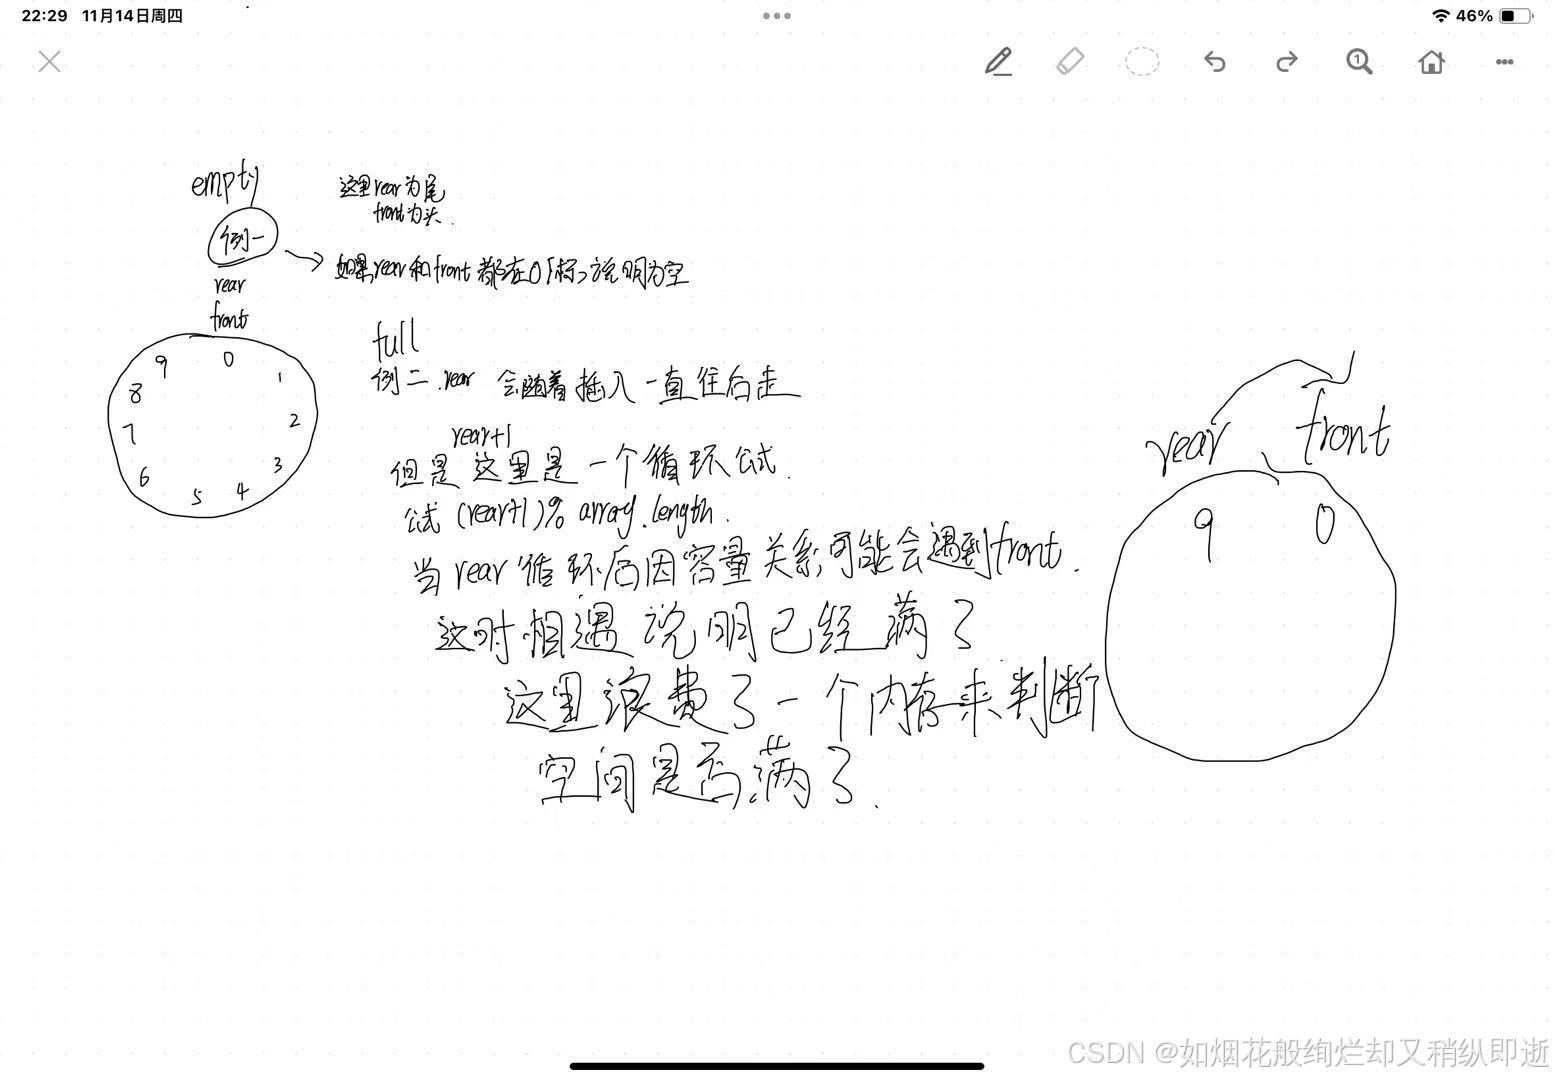 22:29 11月14日周四
46%
empty
这里rear为尾
front为头.
例一
如果rear和front都在0下标>说明为空
rear
front
0
1
2
3
4
5
6
7
8
9
full
例二.rear 会随着插入一直往后走
rear+1
但是 这里是一个循环公式.
公式 (rear+1)% array.length.
当rear循环后因容量关系可能会遇到front.
这时相遇说明已经满了
这里浪费了一个内存来判断
空间是否满了.
rear front
9 0
CSDN @如烟花般绚烂却又稍纵即逝